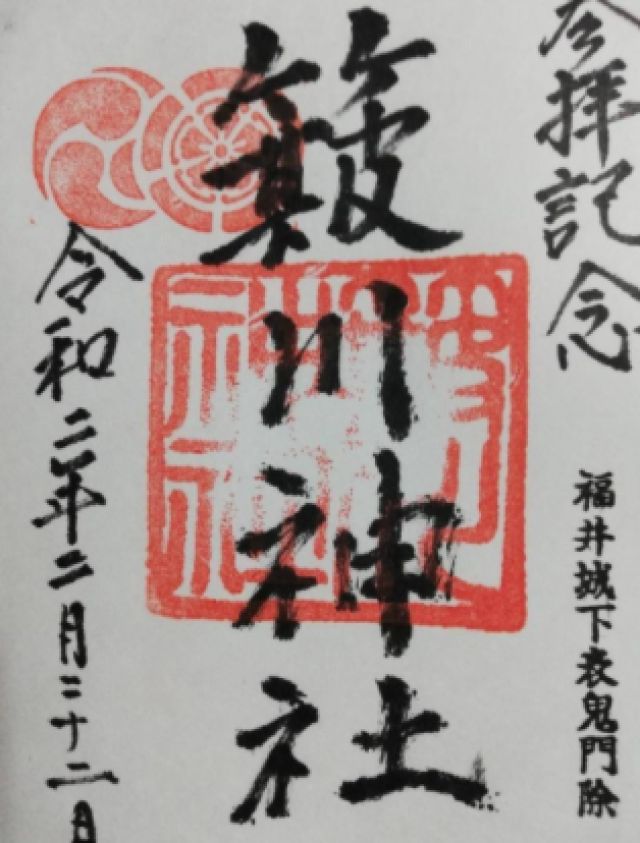 参拝記念
福井城下表鬼門除
簸川神社
令和二年二月二十二日